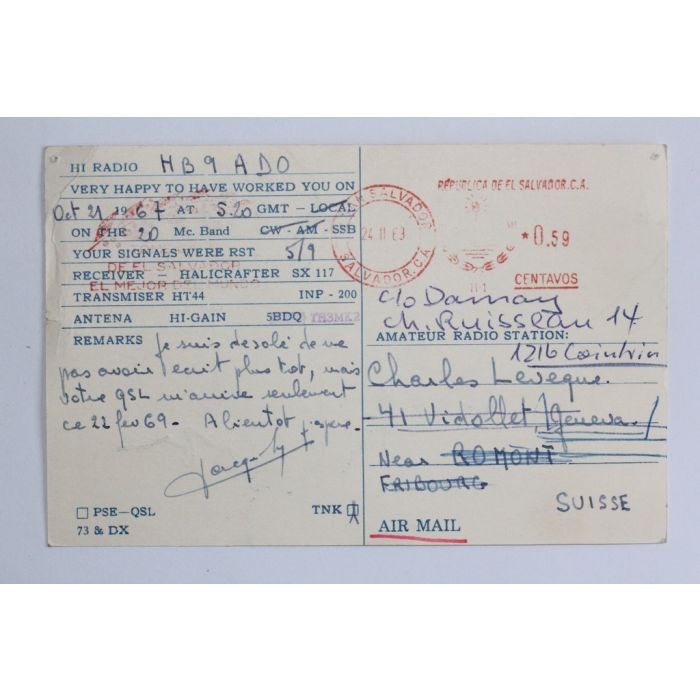 HI RADIO HB9ADO
VERY HAPPY TO HAVE WORKED YOU ON
Oct 21 1967 AT 5.20 GMT - LOCAL
ON THE 20 Mc. Band CW - AM - SSB
YOUR SIGNALS WERE RST 5/9
DE EL SALVADOR
RECEIVER - HALICRAFTER SX 117
EL MEJOR DEL MUNDO
TRANSMISER HT44 INP - 200
ANTENA HI-GAIN 5BDQ TH3MK2
REMARKS je suis désolé de ne
pas avoir écrit plus tot, mais
votre QSL m'arrive seulement
ce 22 fev 69. A bientot j'espere.
PSE-QSL TNK
73 & DX
SAN SALVADOR
24 II 69
SALVADOR, C.A.
REPUBLICA DE EL SALVADOR.C.A.
*0.59
CENTAVOS
c/o
ch. Ruisseau 14
AMATEUR RADIO STATION:
1216 Cointrin
Charles Leveque.
41 Vidollet, Geneva.
Near ROMONT
FRIBOURG
SUISSE
AIR MAIL